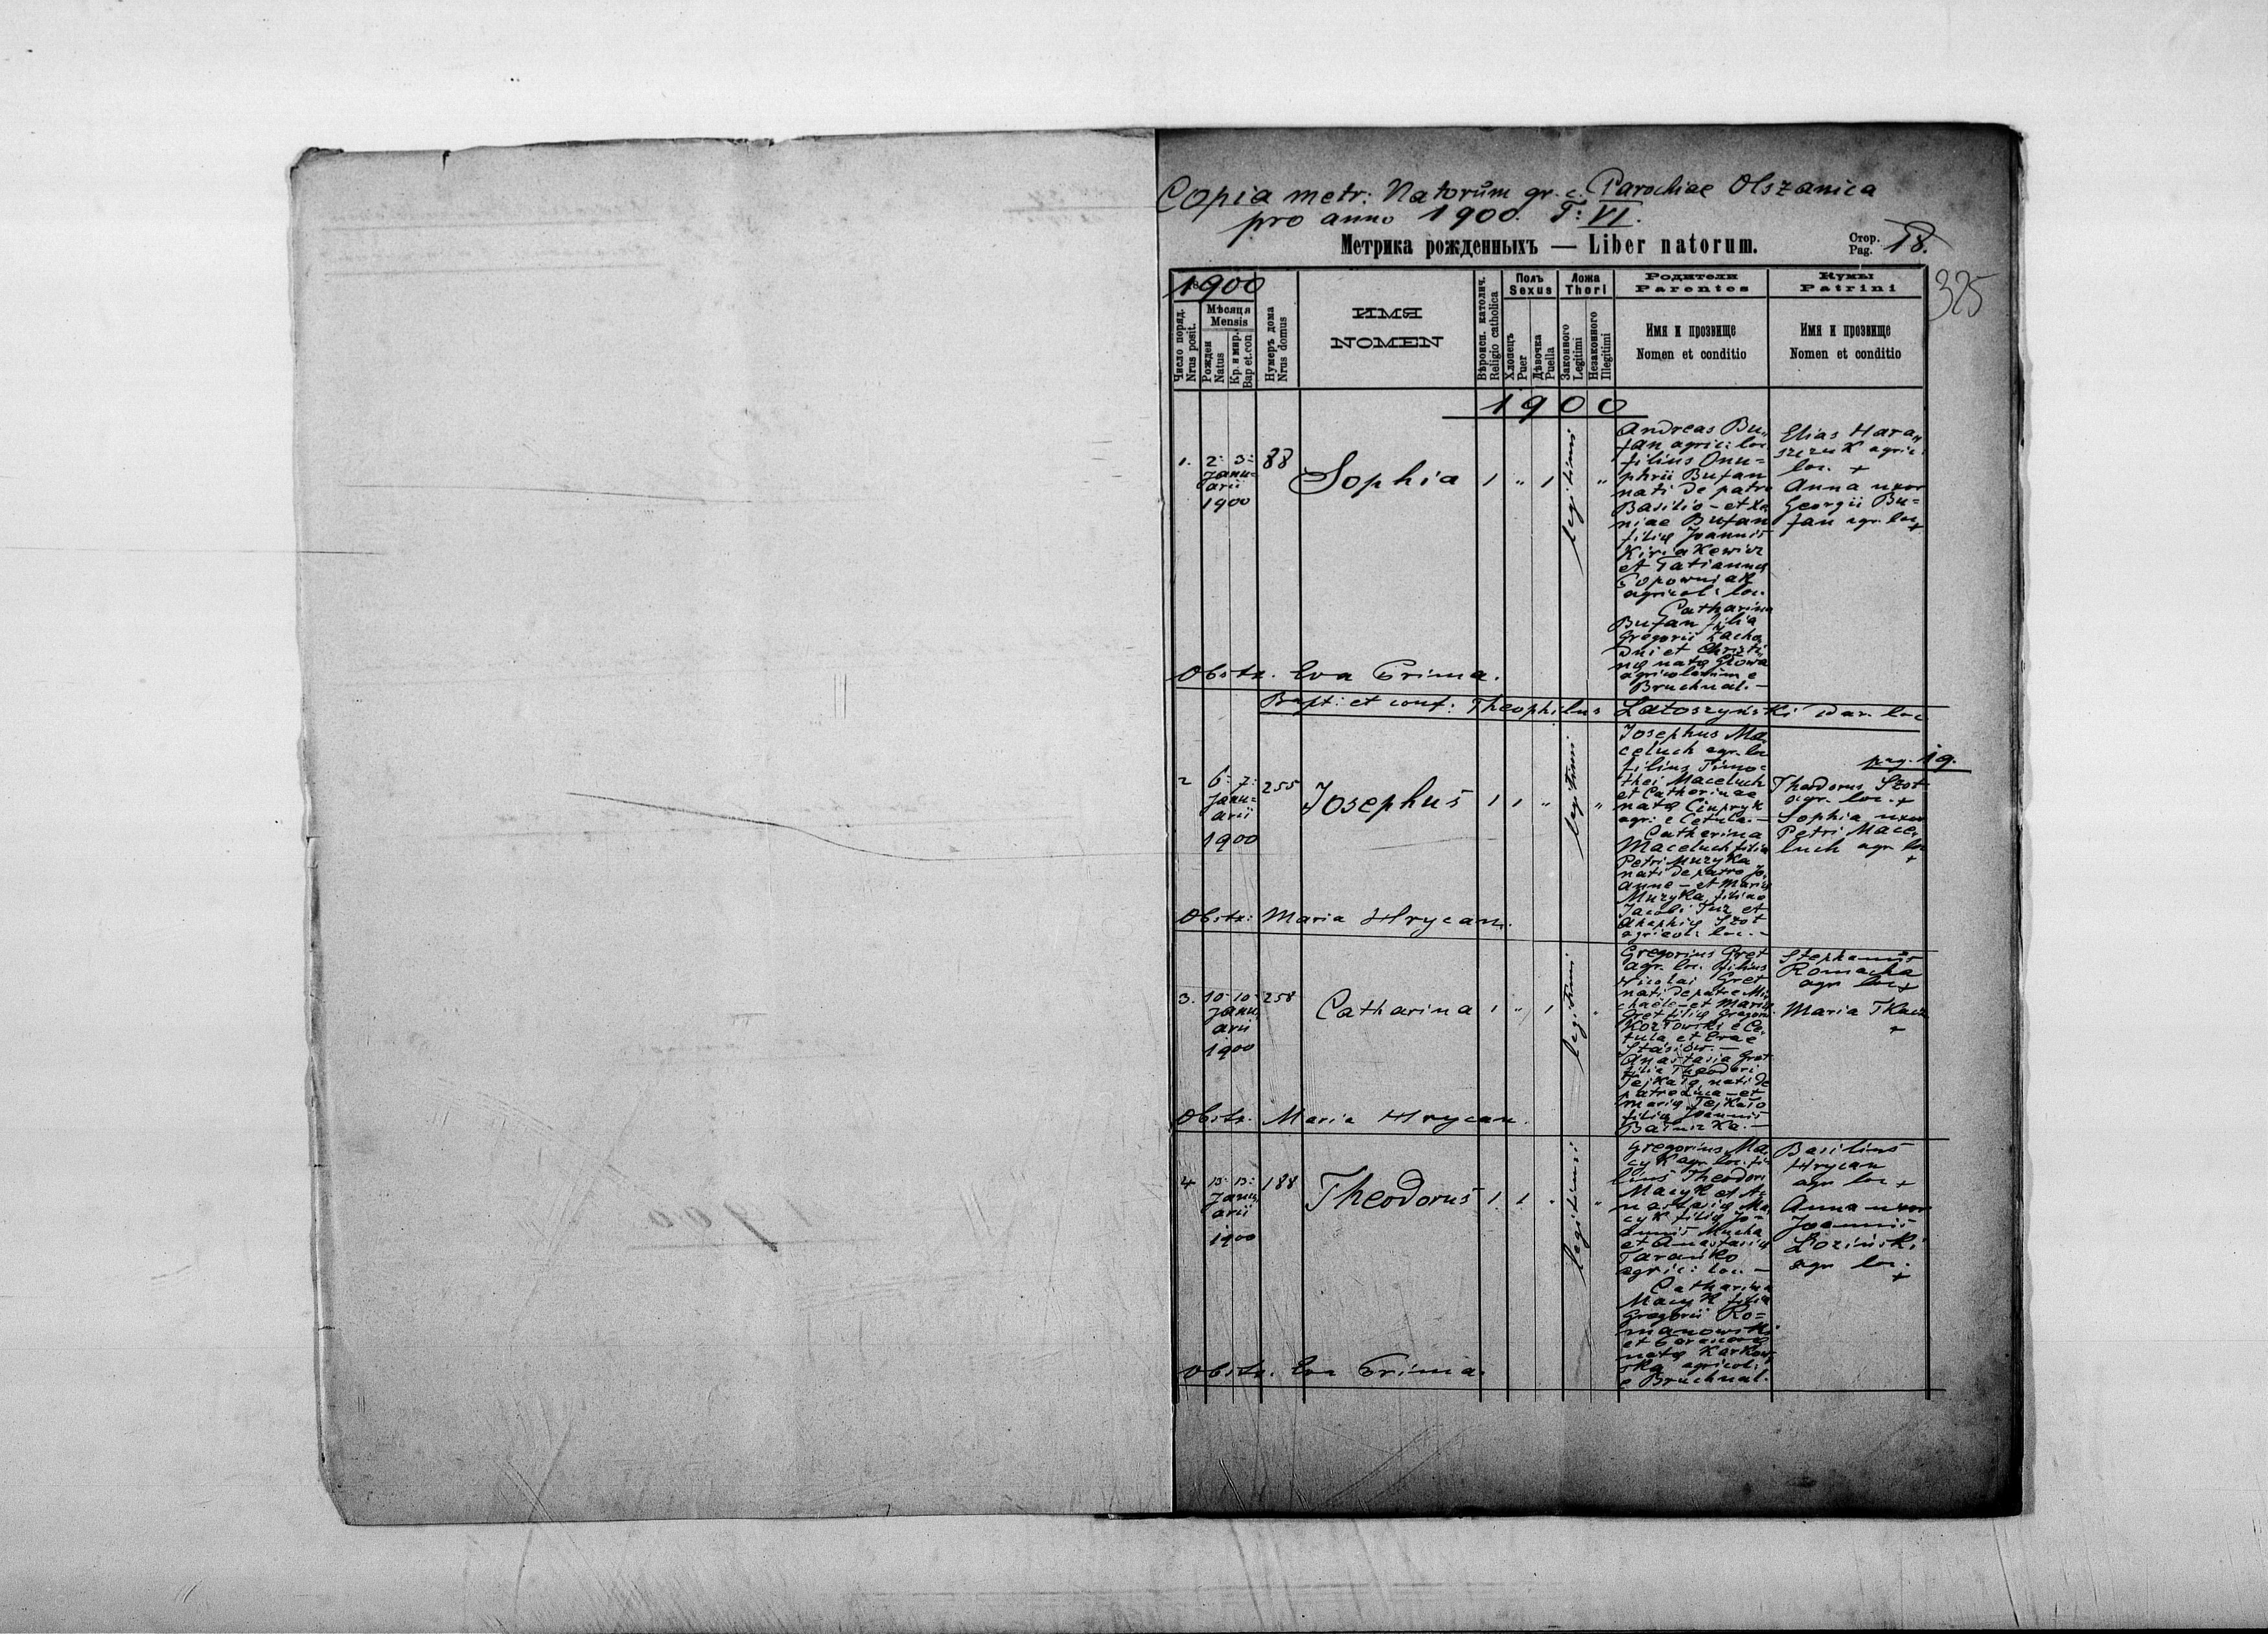 Copia metr: Natorum gr. c. Parochiae Olszanica
pro anno 1900. T: VI.
Метрика рожденныхъ — Liber natorum.
Стор.
Pag. 18.
325
1900
Число поряд.
Nrus posit.
Мѣсяця
Mensis
Рожден
Natus
Кр. и мир.
Bap et.con
Нумеръ дома
Nrus domus
ИМЯ
NOMEN
Вѣроисп. католич.
Religio catholica
Полъ
Sexus
Хлопецъ
Puer
Дѣвочка
Puella
Ложа
Thori
Законного
Legitimi
Незаконного
Illegitimi
Родители
Parentes
Имя и прозвище
Nomen et conditio
Кумы
Patrini
Имя и прозвище
Nomen et conditio
1900
1. 2- 3-
Janu=
arii
1900
88
Sophia
1 " 1
legitimi
"
Andreas Bu„
fan agric: loc
filius Onu=
phrii Bufan
nati de patre
Basilio - et
niae Bufan
filią Joannis
Kiriakewicz
et Tatianną
agricol: loc.
Catharina
Bufan filia
Gregorii Zacha
dni et Christi„
ną natą Głowa
agricolarum e
Bruchnal. —
Elias Hara„
szczuk agric:
loc. +
Anna uxor
Georgii Bu=
fan agr. loc
+
Obstr. Eva Prima.
Bapt: et conf: Theophilus Latoszyński par. loc
2 6- 7-
Janu=
arii
1900
255
Josephus
1 1 "
legitimi
"
Josephus Ma„
celuch agr. loc
filius Timo=
thei Maceluch
et Catherinae
natą Ciupryk
agr: e Cetula. —
Catherina
Maceluch filia
Petri Muzyka
nati de patre Jo„
anne - et Marią
Muzyka filiae
Jacobi Juz et
Szot
agricol: loc. —
pag. 19.
Theodorus Szot
agr. loc. +
Sophia uxor
Petri Mace„
luch agr loc
+
Obstr: Maria Hrycan.
3. 10- 10-
Janu„
arii
1900
258
Catharina
1 " 1
legitimi
"
Gregorius Gret
agr. loc. filius
Nicolai Gret
nati de patre Mi„
chaële - et Marią
Gret filią Gregorii
Kozłowski e Ce„
tula, et Evae
Stasiów. —
Anastasia Gret
filia Theodori
nati de
patre Luca - et
Marią
filią Joannis
Stephanus
Romacha
agr loc +
Maria Tkacz
+
Obstr. Maria Hrycan.
4 13- 13-
Janu„
arii
1900
188
Theodorus
1 1 "
legitimi
"
Gregorius Ma„
cyk agr. loc. fi„
lius Theodori
Macyk et A„
nastasią Ma„
cyk filią Jo=
annis Mucha
et Anastasią
Tarańko
agric: loc. —
Catharina
Macyk filia
Gregorii Ro=
manowski
et
natą Karkow„
ską agricol:
e Bruchnal.
Basilius
Hrycan
agr loc +
Anna uxor
Joannis
Łoziński
agr loc.
+
Obstr. Eva Prima.